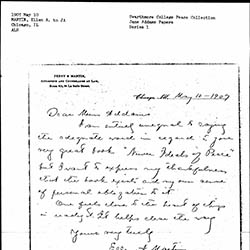 1907 May 10
MARTIN, Ellen A. to JA
Chicago, IL
ALS
Swarthmore College Peace Collection
Jane Addams Papers
Series 1
PERRY & MARTIN,
ATTORNEYS AND COUNSELORS AT LAW,
Chicago, Ill. May 10 - 1907
Dear Miss Addams
I am entirely unequal to saying
the adequate word in regard to your
very great book "Newer Ideals of Peace"
but I want to express my thankfulness
that the book exists and my own sense
of personal obligation to it.
One feels close to the heart of things
in reading it. It helps clear the way
Yours very truly
Martin